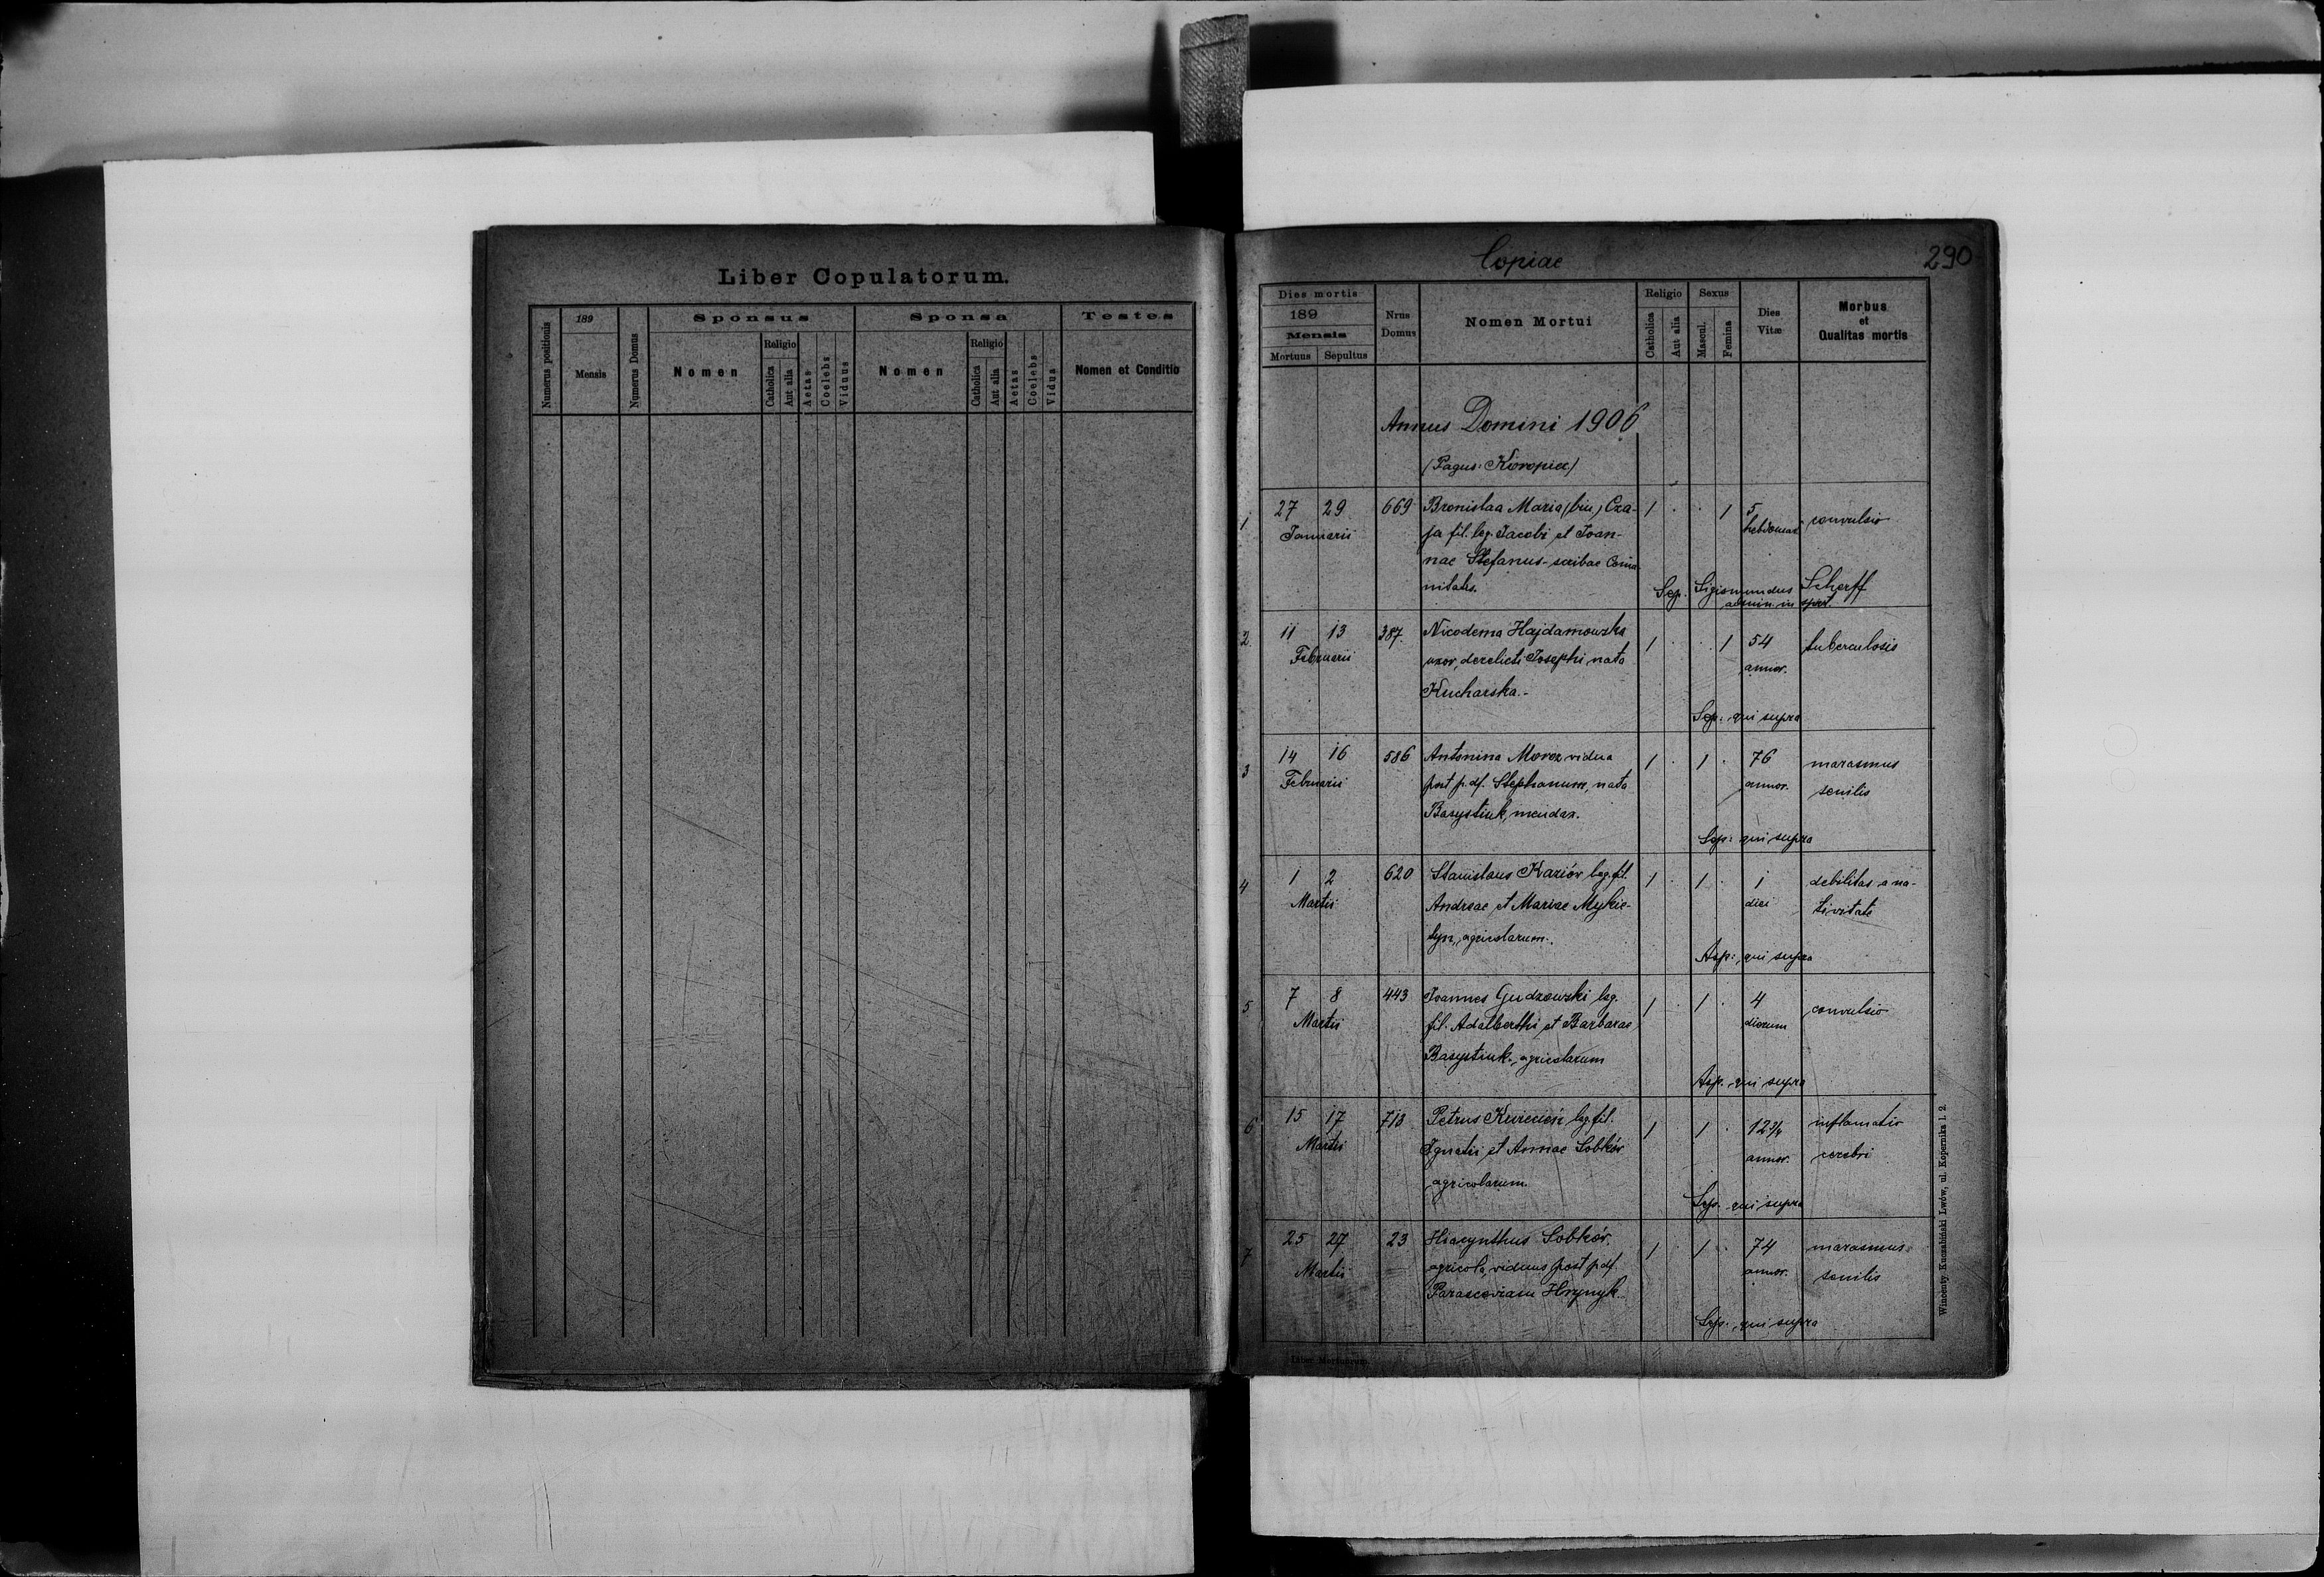 Liber Copulatorum.
Numerus positionis
189
Mensis
Numerus Domus
Sponsus
Nomen
Religio
Catholica
Aut alia
Aetas
Coelebs
Viduus
Sponsa
Nomen
Religio
Catholica
Aut alia
Aetas
Coelebs
Vidua
Testes
Nomen et Conditio
Copiae
290
Dies mortis
189
Mensis
Mortuus Sepultus
Nrus
Domus
Nomen Mortui
Religio
Catholica
Aut alia
Sexus
Mascul.
Femina
Dies
Vitæ
Morbus
et
Qualitas mortis
Annus Domini 1906
(Pagus: Koropiec)
1 27 29 669 Bronislaa Maria (bin.) Cza- 1 . . 1 5 convulsio
Januarii ja fil. leg. Jacobi et Joan- hebdomad.
nae Stefanus - scribae Comu-
nitatis. Sep. Sigismundus Scherff
admin. in spirit.
2 11 13 387. Nicodema Hajdamowska 1 . . 1 54 tuberculosis
Februarii uxor, derelicti Josephi nata annor.
Kucharska.-
Sep: qui supra
3 14 16 586 Antonina Moroz vidua 1 . 1 . 76 marasmus
Februarii post p. df. Stephanum, nata annor. senilis
Basystiuk, mendax.
Sep: qui supra
4 1 2 620 Stanislaus Kaziór leg. fil. 1 . 1 . 1 debilitas a na-
Martii Andreae et Mariae Mykie- diei tivitate
tyn, agricolarum.
Asp: qui supra
5 7 8 443 Joannes Gudzowski leg. 1 . 1 . 4 convulsio
Martii fil. Adalberthi et Barbarae dierum
Basystiuk, agricolarum
Asp. qui supra
6 15 17 713 Petrus Kwiecień leg. fil. 1 . 1 . 12 3/4 inflamatio
Martii Ignatii et Annae Sobków annor. cerebri
agricolarum.
Sep. qui supra
7 25 27 23 Hiacynthus Sobków 1 . 1 . 74 marasmus
Martii agricola, viduus post p. df. annor. senilis
Parasceviam Hrynyk.
Sep: qui supra
Liber Mortuorum.
Wincenty Kuczabiński Lwów, ul. Kopernika l. 2.